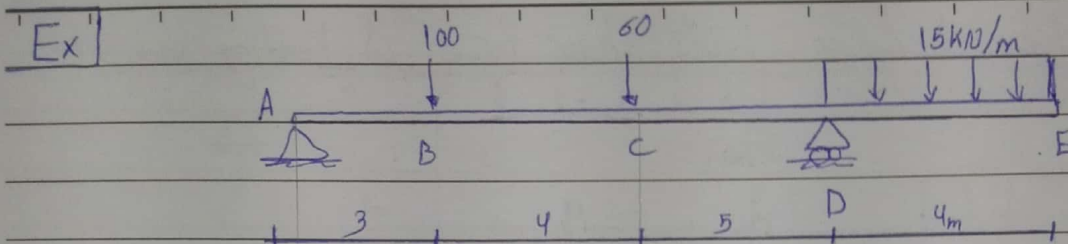 Ex
100 60 15KN/m
A
B C E
D
3 4 5 4m